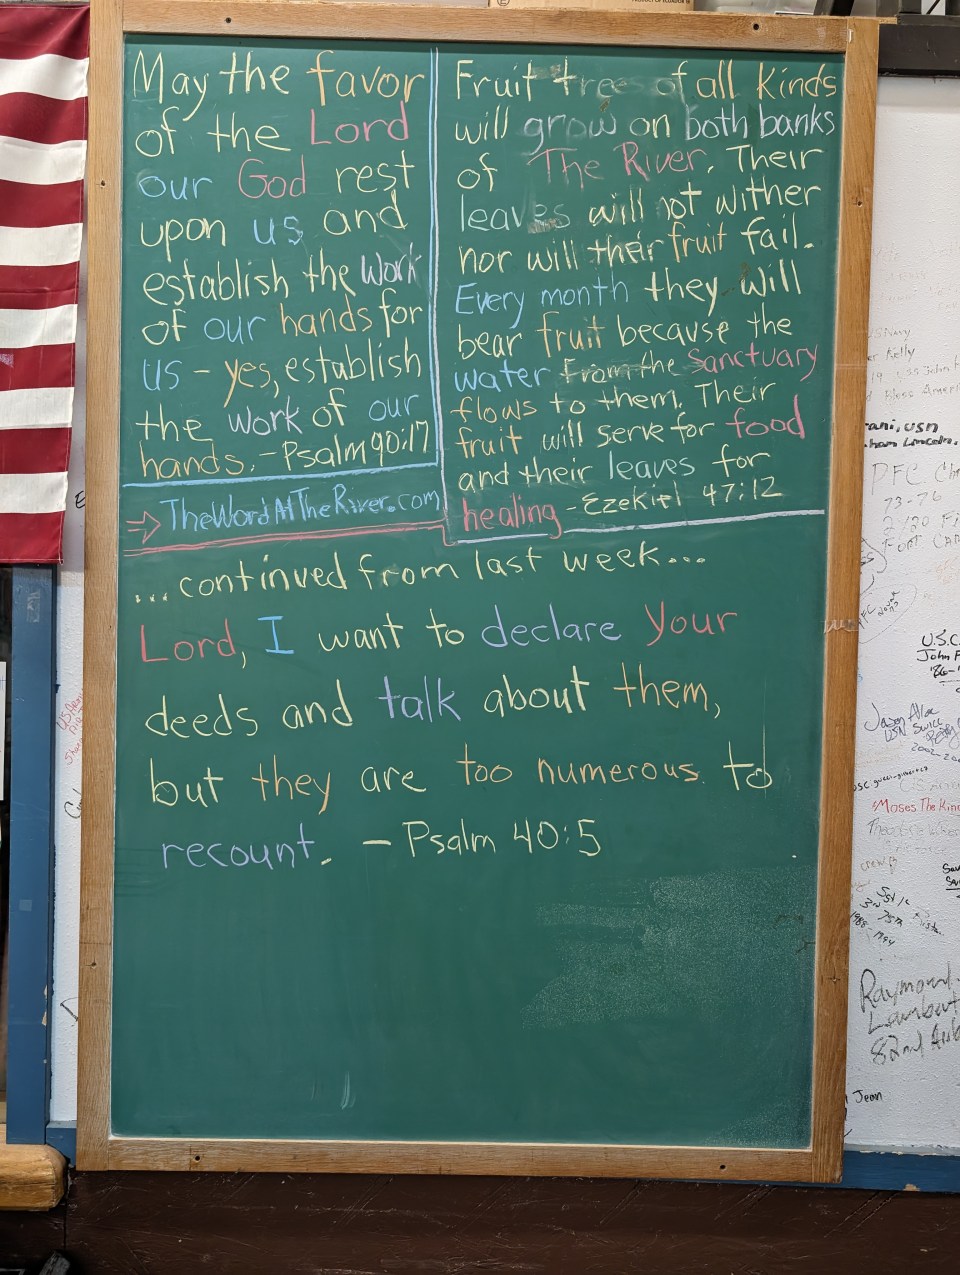 May the favor
of the Lord
our God rest
upon us and
establish the work
of our hands for
us - yes, establish
the work of our
hands. - Psalm 90:17
Fruit trees of all kinds
will grow on both banks
of The River. Their
leaves will not wither
nor will their fruit fail.
Every month they will
bear fruit because the
water from the Sanctuary
flows to them. Their
fruit will serve for food
and their leaves for
healing - Ezekiel 47:12
⇒ TheWordAtTheRiver.com
...continued from last week...
Lord, I want to declare Your
deeds and talk about them,
but they are too numerous to
recount. - Psalm 40:5
US Navy
Kelly
USS John
Bless Ameri
rani, USN
ham Lincoln.
PFC Ch
73-76
2/20 Fi
FORT CAM
PFC
U.S.C.
John F
'86-
Jason Alae
USN
2002-200
Moses The King
1988
May
Raymond
Lambert
82nd Airb
Jean